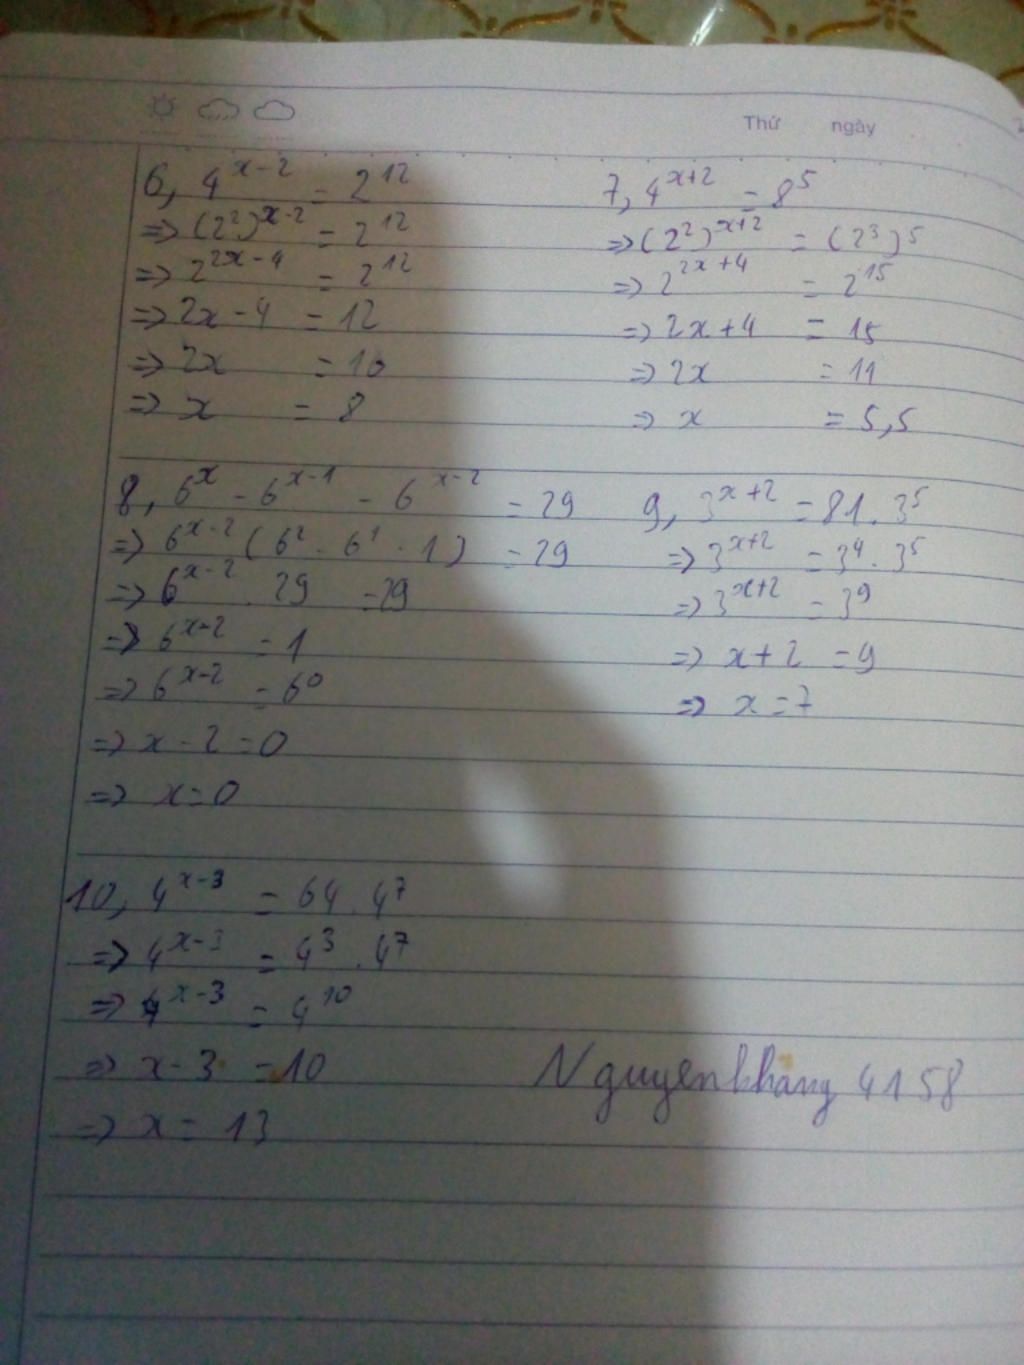 Thứ ngày
6, 4^{x-2} = 2^{12}
=> (2^2)^{x-2} = 2^{12}
=> 2^{2x-4} = 2^{12}
=> 2x-4 = 12
=> 2x = 16
=> x = 8
7, 4^{x+2} = 8^5
=> (2^2)^{x+2} = (2^3)^5
=> 2^{2x+4} = 2^{15}
=> 2x+4 = 15
=> 2x = 11
=> x = 5,5
8, 6^x - 6^{x-1} - 6^{x-2} = 29
=> 6^{x-2} (6^2 - 6^1 - 1) = 29
=> 6^{x-2} . 29 = 29
=> 6^{x-2} = 1
=> 6^{x-2} = 6^0
=> x-2 = 0
=> x = 0
9, 3^{x+2} = 81 . 3^5
=> 3^{x+2} = 3^4 . 3^5
=> 3^{x+2} = 3^9
=> x+2 = 9
=> x = 7
10, 4^{x-3} = 64 . 4^7
=> 4^{x-3} = 4^3 . 4^7
=> 4^{x-3} = 4^{10}
=> x-3 = 10
=> x = 13
Nguyenkhang 4158